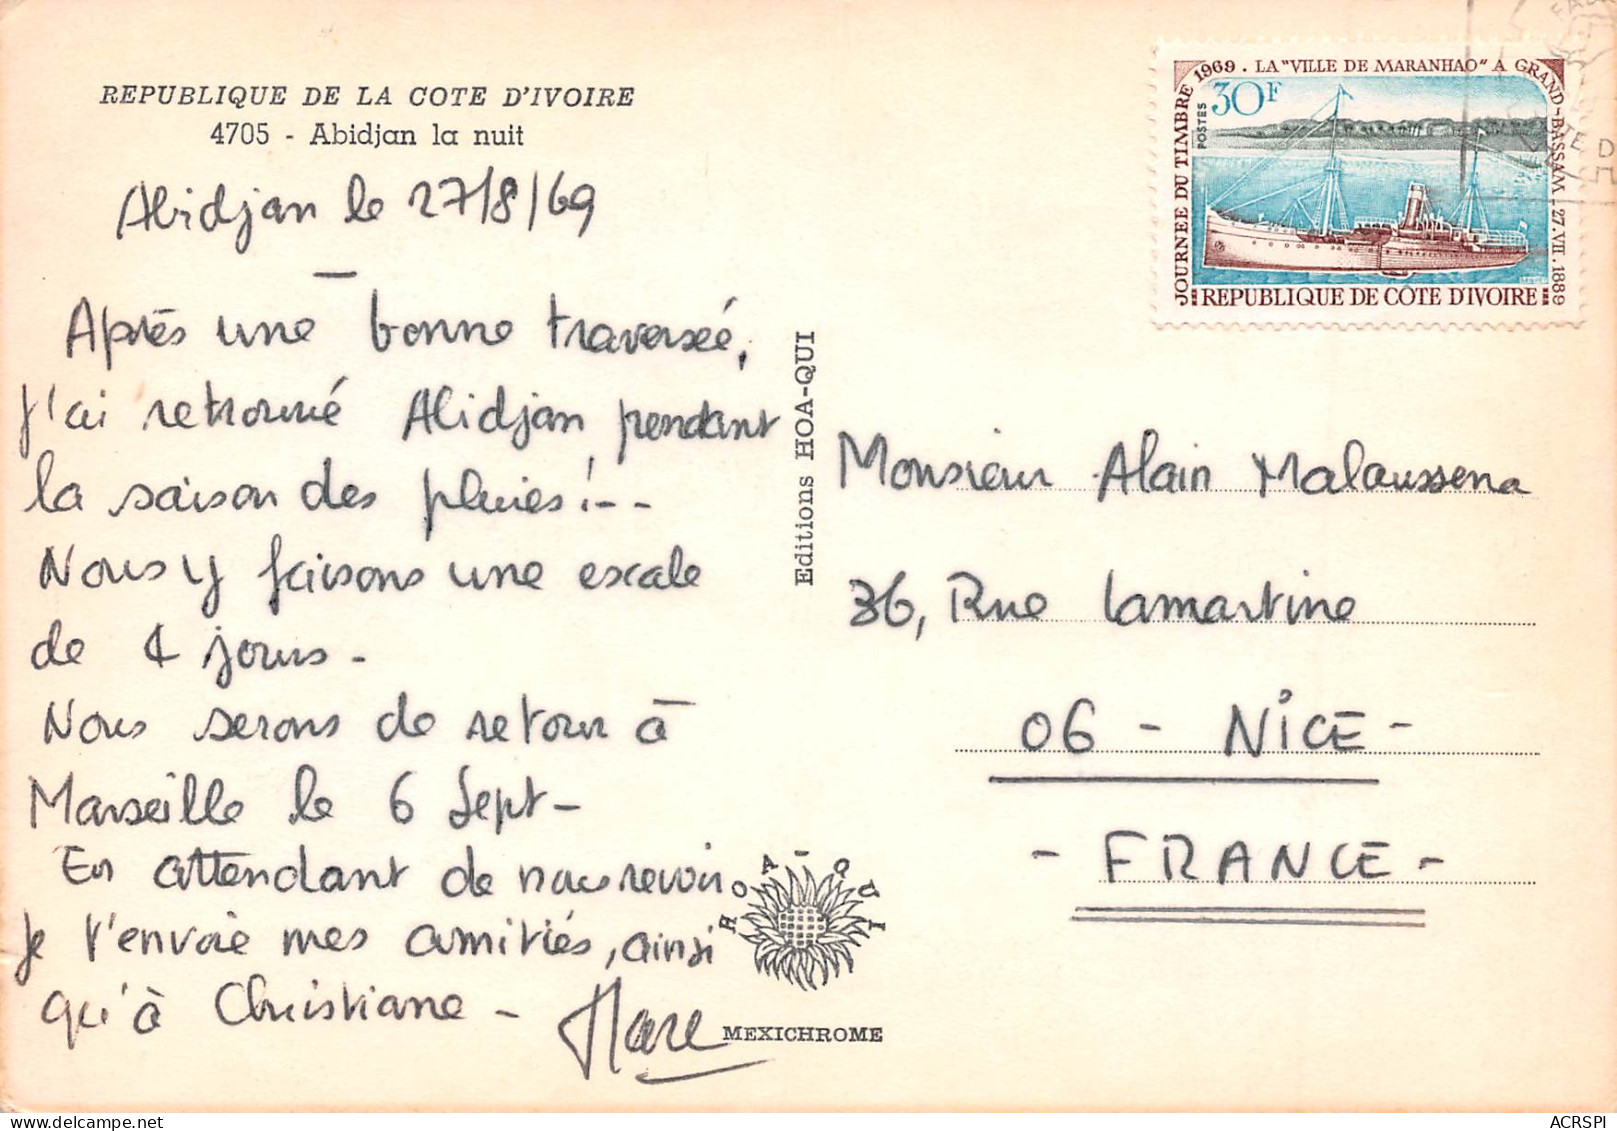 REPUBLIQUE DE LA COTE D'IVOIRE
4705 - Abidjan la nuit
Abidjan le 27/8/69
Après une bonne traversée,
j'ai retrouvé Abidjan pendant
la saison des pluies !--
Nous y faisons une escale
de 4 jours -
Nous serons de retour à
Marseille le 6 Sept -
En attendant de nous revoir
je t'envoie mes amitiés, ainsi
qu'à Christiane - Marc
Editions HOA-QUI
HOA-QUI
MEXICHROME
JOURNEE DU TIMBRE 1969 . LA "VILLE DE MARANHAO" A GRAND-BASSAM - 27.VII.1889
POSTES
30F
REPUBLIQUE DE COTE D'IVOIRE
Monsieur Alain Malaussena
36, Rue Lamartine
06 - NICE -
- FRANCE -
ACRSPI